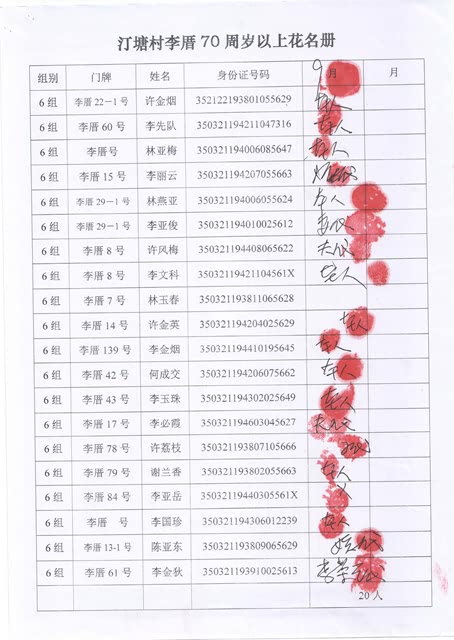 汀塘村李厝70周岁以上花名册
组别 门牌 姓名 身份证号码 9月 月
6组 李厝22－1号 许金烟 352122193801055629 本人
6组 李厝60号 李先队 350321194211047316 本人
6组 李厝号 林亚梅 350321194006085647 本人
6组 李厝15号 李丽云 350321194207055663
6组 李厝29－1号 林燕亚 350321194006055624 本人
6组 李厝29－1号 李亚俊 350321194010025612
6组 李厝8号 许风梅 350321194408065622
6组 李厝8号 李文科 35032119421104561X 本人
6组 李厝7号 林玉春 350321193811065628
6组 李厝14号 许金英 350321194204025629 本人
6组 李厝139号 李金烟 350321194410195645 本人
6组 李厝42号 何成交 350321194206075662 本人
6组 李厝43号 李玉珠 350321194302025649 本人
6组 李厝17号 李必霞 350321194603045627
6组 李厝78号 许荔枝 350321193807105666
6组 李厝79号 谢兰香 350321193802055663 本人
6组 李厝84号 李亚岳 35032119440305561X
6组 李厝 号 李国珍 350321194306012239 本人
6组 李厝13-1号 陈亚东 350321193809065629
6组 李厝61号 李金狄 350321193910025613
20人